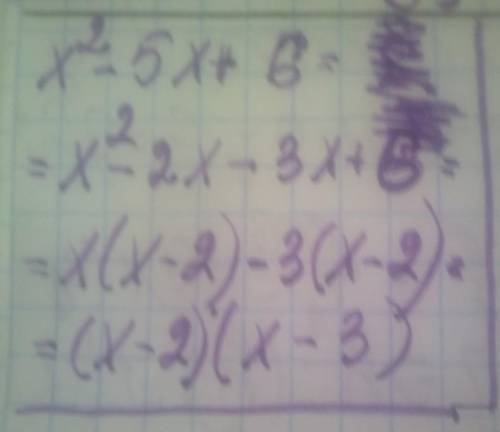 x² - 5x + 6 =
= x² - 2x - 3x + 6 =
= x(x - 2) - 3(x - 2) =
= (x - 2)(x - 3)